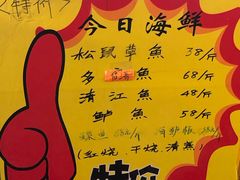 《特价》
今日海鲜
松鼠草魚 38/斤
多 魚 68/斤
清江魚 48/斤
鲈魚 58/斤
(红烧、干烧、清蒸)
特价